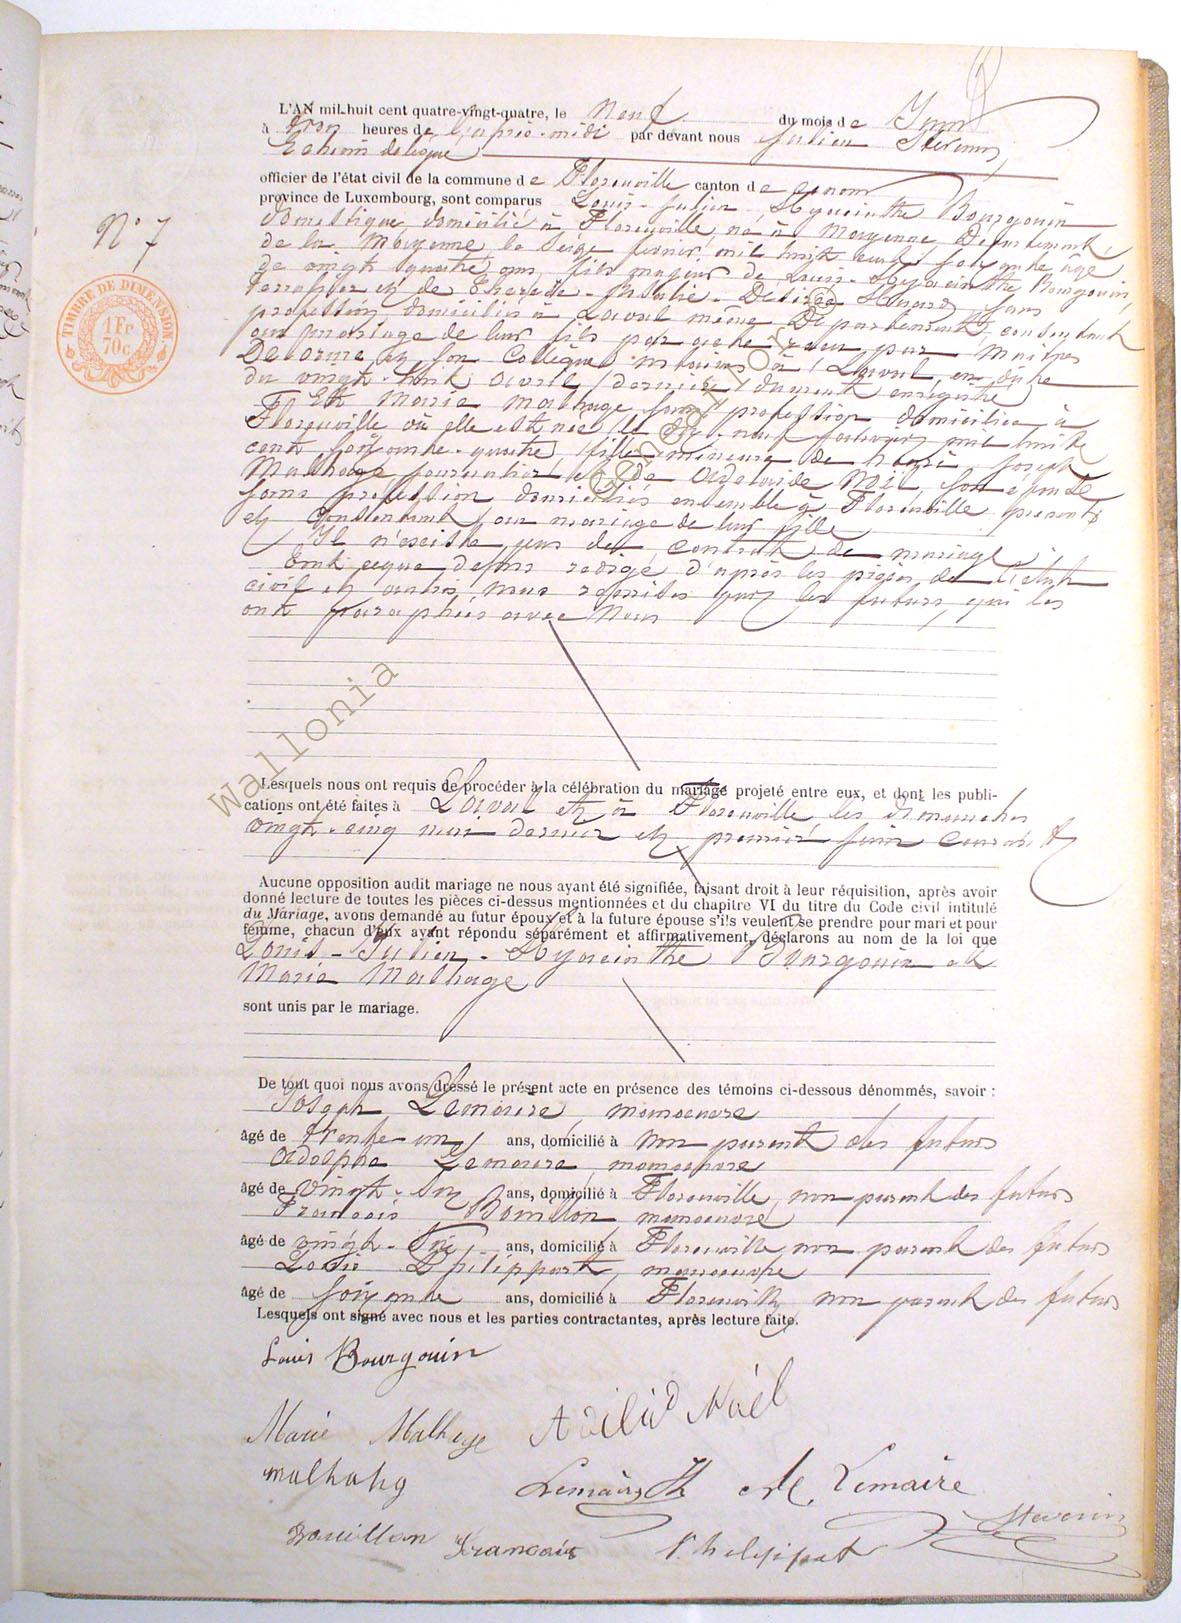 L'AN mil-huit cent quatre-vingt-quatre, le Neuf du mois de Juin
à trois heures de l'après-midi par devant nous Julien Stevenin,
Echevin délégué
officier de l'état civil de la commune de Florenville canton de
province de Luxembourg, sont comparus Louis-Julien-Hyacinthe Bourgouin
Domestique, domicilié à Florenville, né à Mayenne, Département
de la Mayenne, le Seize février mil huit cent soixante âgé
de vingt quatre ans, fils majeur de Louis-Hyacinthe Bourgouin,
terrassier et de Therese-Julie-Désirée sans
profession, domiciliés à Laval même Département, consentant
au mariage de leur fils par acte reçu par Maitres
Delorme et son Collègue notaires à Laval en date
du vingt-huit avril dernier dument enregistré
Et Marie Malhage sans profession domiciliée à
Florenville où elle est née le dix-neuf mil huit
cent soixante-quatre, fille mineure de Henri Joseph
Malhage journalier et de Adelaïde Noël son epouse
sans profession domiciliés ensemble à Florenville présents
et consentant au mariage de leur fille
Il n'existe pas de contrat de mariage
Tout ceque dessus rédigé d'après les pièces de l'état
civil et autres nous remises par les futurs, qui les
ont paraphées avec Nous
N° 7
TIMBRE DE DIMENSION.
1 Fr
70c
Wallonia
Lesquels nous ont requis de procéder à la célébration du mariage projeté entre eux, et dont les publi-
cations ont été faites à Laval et à Florenville les dimanches
vingt-cinq mai dernier et premier juin courant
Aucune opposition audit mariage ne nous ayant été signifiée, faisant droit à leur réquisition, après avoir
donné lecture de toutes les pièces ci-dessus mentionnées et du chapitre VI du titre du Code civil intitulé
du Mariage, avons demandé au futur époux et à la future épouse s'ils veulent se prendre pour mari et pour
femme, chacun d'eux ayant répondu séparément et affirmativement, déclarons au nom de la loi que
Louis-Julien-Hyacinthe Bourgouin et
Marie Malhage
sont unis par le mariage.
De tout quoi nous avons dressé le présent acte en présence des témoins ci-dessous dénommés, savoir :
Joseph Lemaire, manoeuvre
âgé de trente-un ans, domicilié à non parent des futurs
Adolphe Lemaire, manoeuvre
âgé de vingt-six ans, domicilié à Florenville, non parent des futurs
François Bouillon, manoeuvre
âgé de vingt- ans, domicilié à Florenville, non parent des futurs
Louis Philippart, manoeuvre
âgé de soixante ans, domicilié à Florenville non parent des futurs
Lesquels ont signé avec nous et les parties contractantes, après lecture faite.
Louis Bourgouin
Marie Malhage Adilid Noël
malhahg Lemaire Jh Ad. Lemaire
Stevenin
Bouillon François Philippart